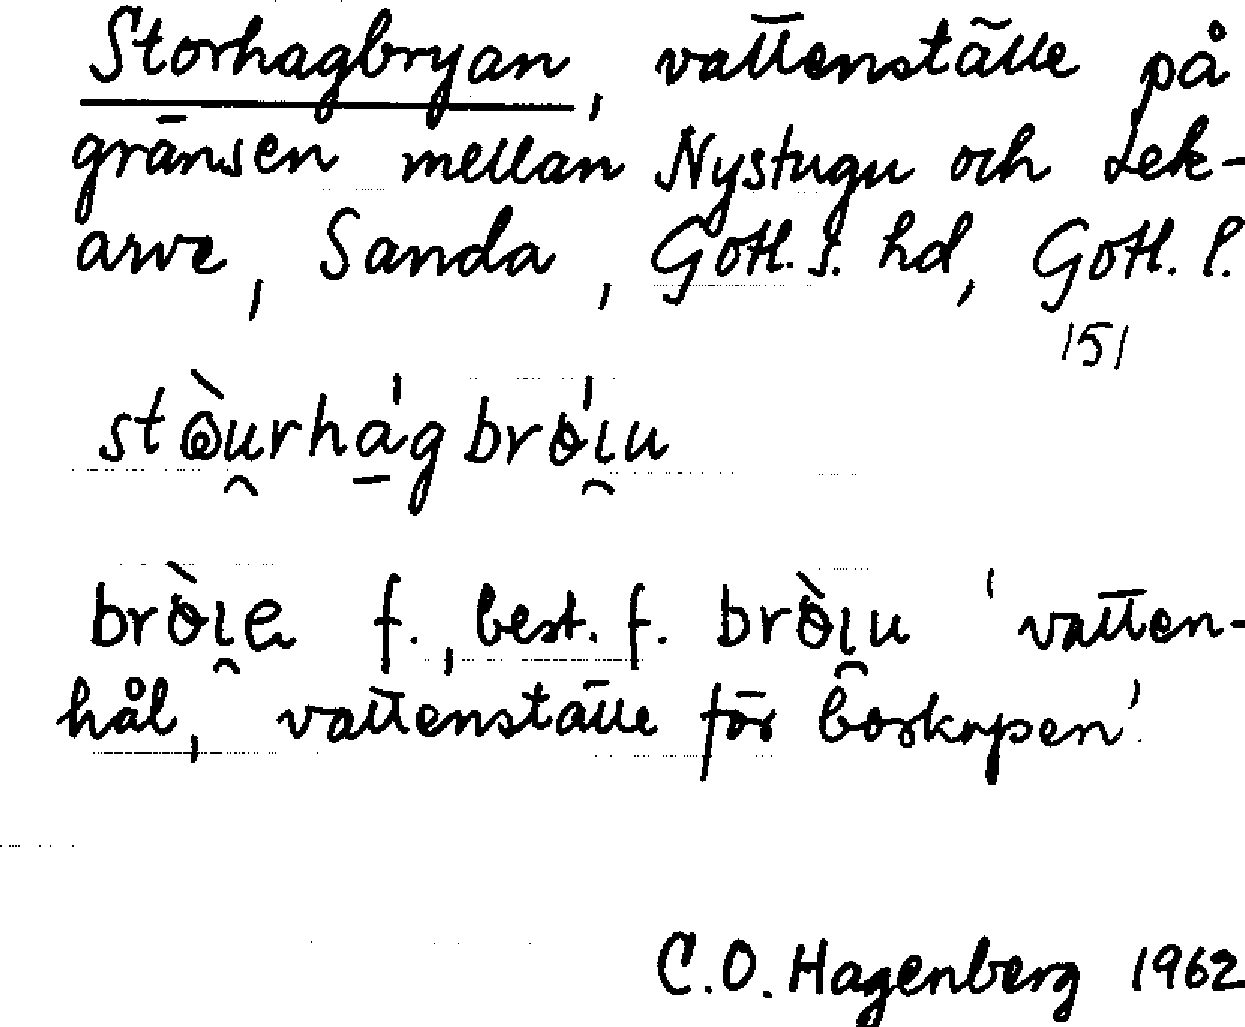 Storhagbryan, vattenställe på
gränsen mellan Nystugu och Lek-
arve, Sanda, Gotl. S. hd, Gotl. l.
151
f., best. f. 'vatten-
hål, vattenställe för boskapen'.
C.O. Hagenberg 1962